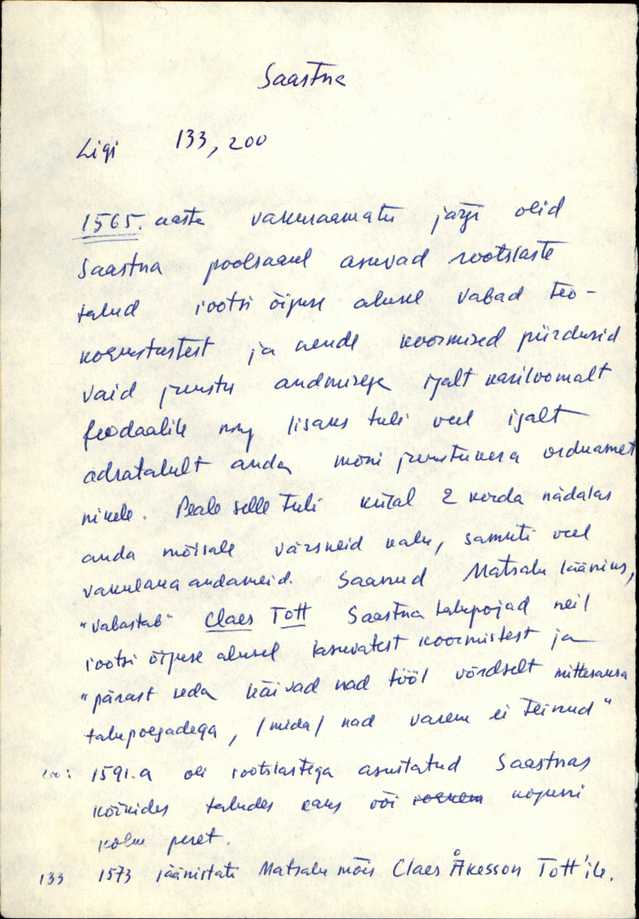 Saastna
Ligi 133, 200
1565. aasta vakuraamatu järgi olid
Saastna poolsaarel asuvad rootslaste
talud rootsi õiguse alusel vabad teo-
kohustustest ja nende koormised piirdusid
vaid juustu andmisega igalt kariloomalt
feodaalile ning lisaks tuli veel igalt
adratalult anda mõni juustukera orduamet
nikele. Peale selle tuli külal 2 korda nädalas
anda mõisale värsneid kalu, samuti veel
vakulana andameid. Saanud Matsalu lääniks,
"vabastab" Claes Tott Saastna talupojad neil
rootsi õiguse alusel lasuvatest koormistest ja
"pärast seda käivad nad tööl võrdselt mittesaksa
talupoegadega, /mida/ nad varem ei teinud"
200: 1591. a oli rootslastega asustatud Saastnas
kõikides taludes kaks või kogun
kolm peret.
133 1573 läänistati Matsalu mõis Claes Åkesson Tott'ile.